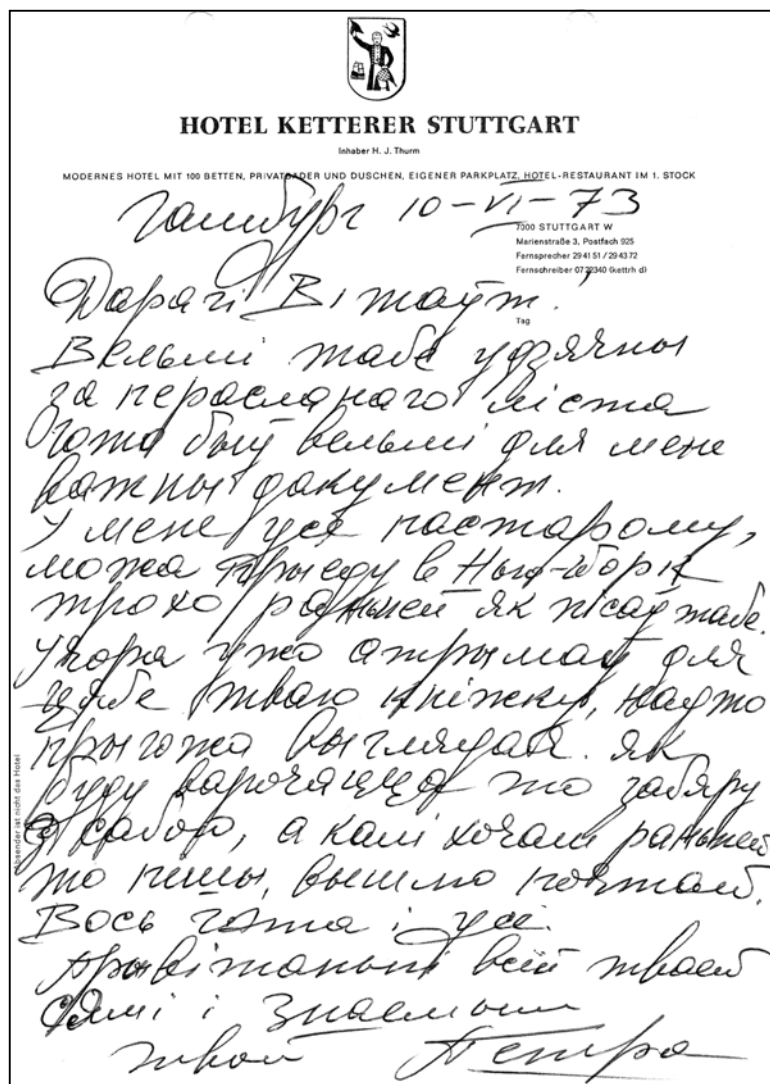 HOTEL KETTERER STUTTGART
Inhaber H. J. Thurm
MODERNES HOTEL MIT 100 BETTEN, PRIVATBÄDER UND DUSCHEN, EIGENER PARKPLATZ, HOTEL-RESTAURANT IM 1. STOCK
Гамбург 10-VI-73
7000 STUTTGART W
Marienstraße 3, Postfach 925
Fernsprecher 29 41 51 / 29 43 72
Fernschreiber 07 22340 (kettrh d)
Tag
Дарагі Вітаўт.
Вельмі табе удзячны
за перасланаго ліста
Гэта быў вельмі для мене
важны дакумент.
У мене усё пастарому,
можа прыеду в Нью-Йорк
трохо раньшей як пісаў табе.
Учора ужо атрымаў для
цябе тваю кніжку, надто
прыгожа выглядае. Як
буду варочацца то забяру
з сабою, а калі хочаш раньшей
то пішы, вышлю почтай.
Вось гэта і усё.
Прывітаньні всей твоей
сямі і знаемым
твой Петра
Absender ist nicht das Hotel